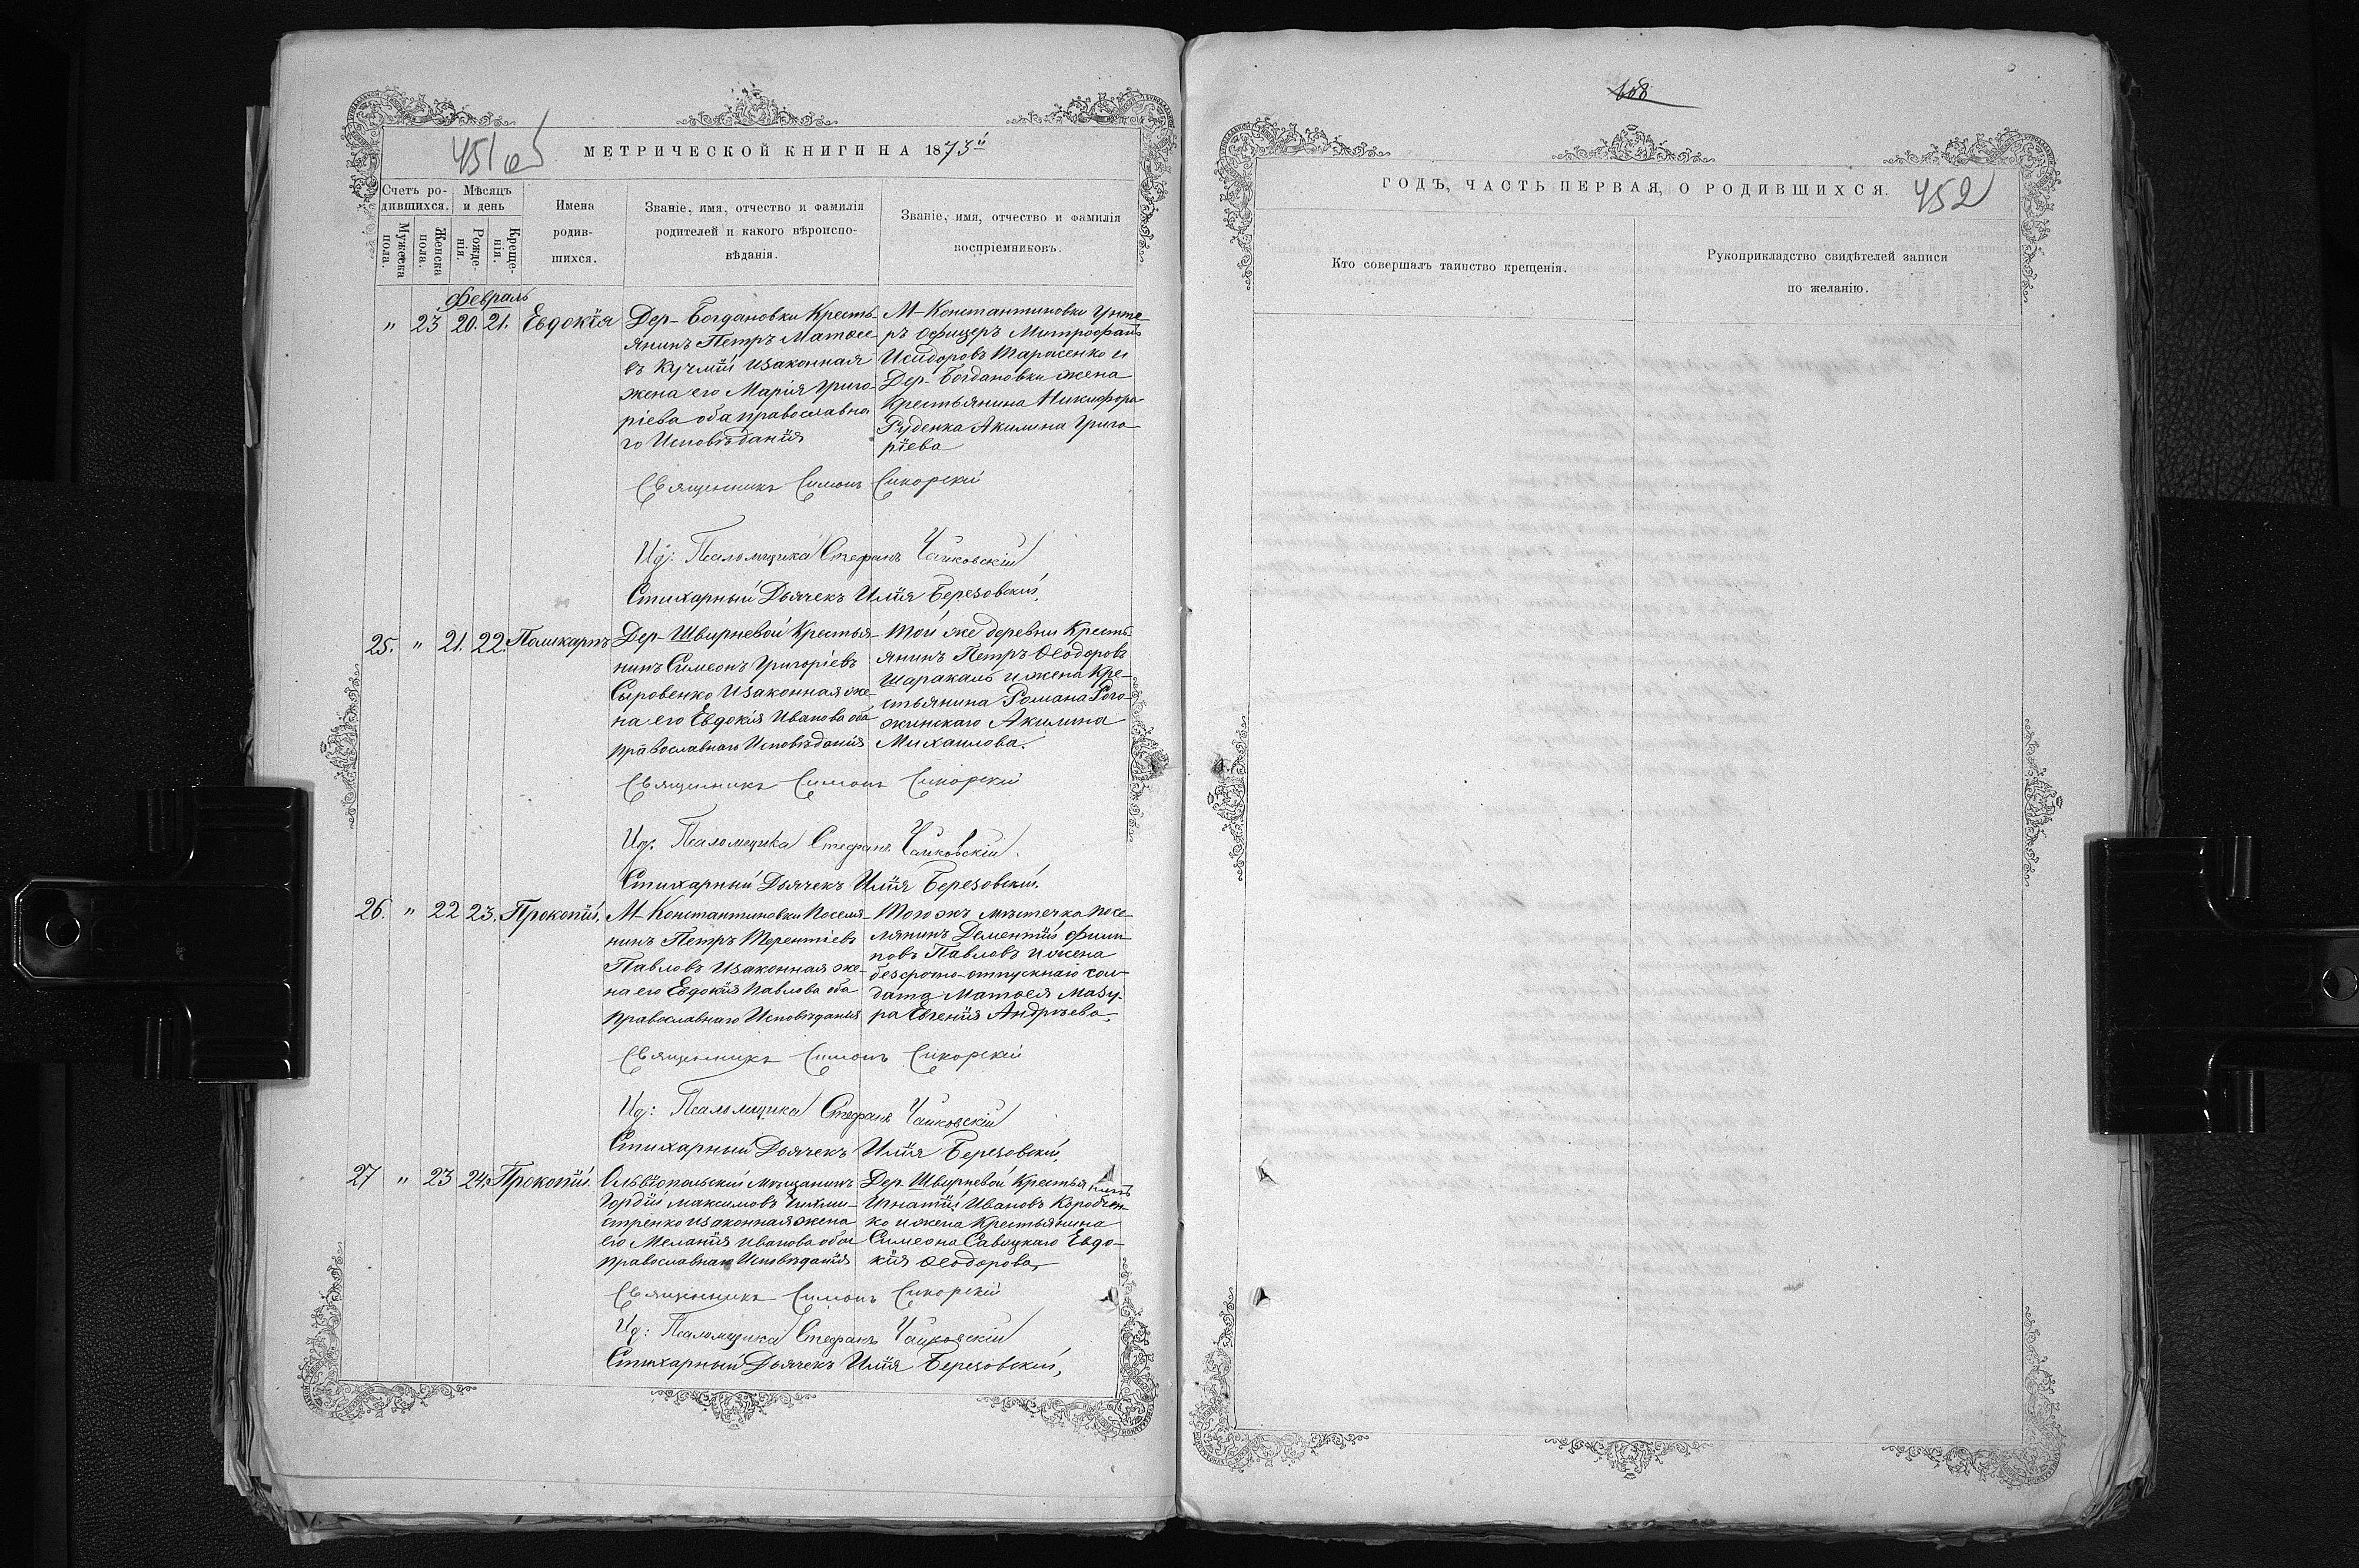 451 об
МЕТРИЧЕСКОЙ КНИГИ НА 1873й
Счетъ ро-
дившихся.
Мѣсяцъ
и день
Мужеска
пола.
Женска
пола.
Рожде-
нія.
Креще-
нія.
Имена
родив-
шихся.
Званіе, имя, отчество и фамилія
родителей и какого вѣроиспо-
вѣданія.
Званіе, имя, отчество и фамилія
воспріемниковъ.
Февраль
" 23 20. 21. Евдокія
Дер-Богдановки Кресть-
янинъ Петръ Матѳее-
въ Кучмій изаконная
жена его Марія Григо-
ріева оба православна
го Исповѣданія
М-Константиновки Унте-
ръ Офицеръ Митрофанъ
Исидоровъ Тарасенко и
Дер-Богдановки жена
Крестьянина Никифора
Руденка Акилина Григо-
ріева
Священникъ Симонъ Сикорскій
Ид: Псаломщика Стефанъ Чайковскій
Стихарный Дьячекъ Илія Березовскій,
25. " 21. 22. Поликарпъ
Дер-Швырневой Крестья-
нинъ Симеонъ Григоріевъ
Сыровенко Изаконная же-
на его Евдокія Иванова оба
православнаго Исповѣданія
Той же деревни Кресть-
янинъ Петръ Ѳеодоровъ
Шаракалъ и жена Кре-
стьянина Романа Рого-
жинскаго Акилина
Михаилова.
Священникъ Симонъ Сикорскій
Ид: Псаломщика Стефанъ Чайковскій.
Стихарный Дьячекъ Илія Березовскій.
26. " 22 23. Прокопій.
М-Константиновки Поселя-
нинъ Петръ Терентіевъ
Павловъ Изаконная же-
на его Евдокія Павлова оба
Православнаго Исповѣданія
Того жъ мѣстечка посе-
лянинъ Дементій Фили-
повъ Павловъ и жена
безсрочно-отпускнаго сол-
дата Матѳея Мазу-
ра Евгенія Андрѣева,
Священникъ Симонъ Сикорскій
Ид: Псаломщика Стефанъ Чайковскій
Стихарный Дьячекъ Илія Березовскій,
27 " 23 24. Прокопій.
Ольвіопольскій мѣщанинъ
Гордій Максимовъ
изаконная жена
его Меланія Иванова оба
православнаго Исповѣданія
Дер. Швырневой Крестьянинъ
Игнатій Ивановъ Коробчен-
ко и жена Крестьянина
Симеона Савицкаго Евдо-
кія Ѳеодорова,
Священникъ Симонъ Сикорскій
Ид: Псаломщика Стефанъ Чайковскій
Стихарный Дьячекъ Илія Березовскій,
ГОДЪ, ЧАСТЬ ПЕРВАЯ, О РОДИВШИХСЯ.
452
Кто совершалъ таинство крещенія.
Рукоприкладство свидѣтелей записи
по желанію.